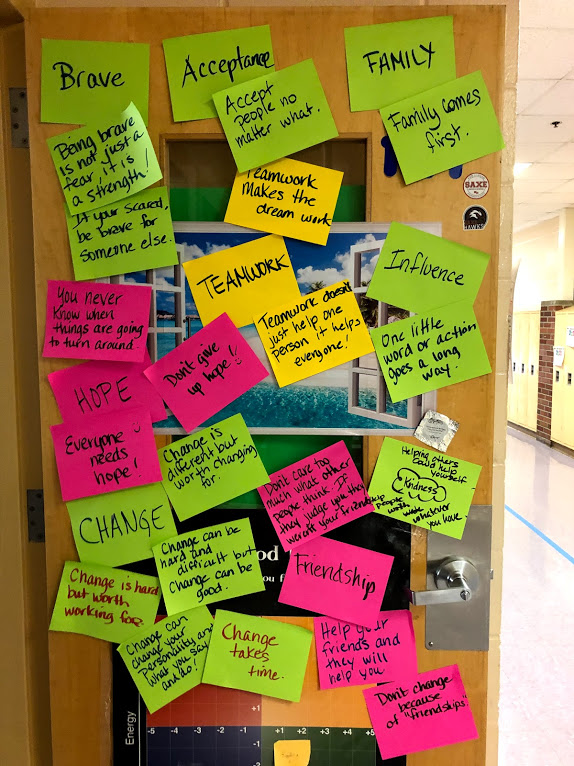 Brave
Acceptance
FAMILY
Being brave
is not just a
fear, it is
a strength!
Accept
people no
matter what.
Family comes
first.
If your scared,
be brave for
someone else.
Teamwork
makes the
dream work
SAXE
HAWKS
TEAMWORK
Influence
You never
know when
things are going
to turn around.
Don't give
up hope!
Teamwork doesn't
just help one
person it helps
everyone!
One little
word or action
goes a long
way.
HOPE
Everyone
needs
hope!
Change is
different but
worth changing
for.
Don't care too
much what other
people think. If
they judge you they
weren't your friend
Helping others
could help
yourself
Kindness
Help
people
with
whatever
you have.
CHANGE
Change can be
hard and
difficult but
Change can be
good.
Friendship
Change is hard
but worth
working for.
Change can
change your
Personality and
what you say
and do!
Change
takes
time.
Help your
friends and
they will
help you
Don't change
because
of "friendships".
Energy
-5 -4 -3 -2 -1 +1 +2 +3 +4 +5
-1
-2